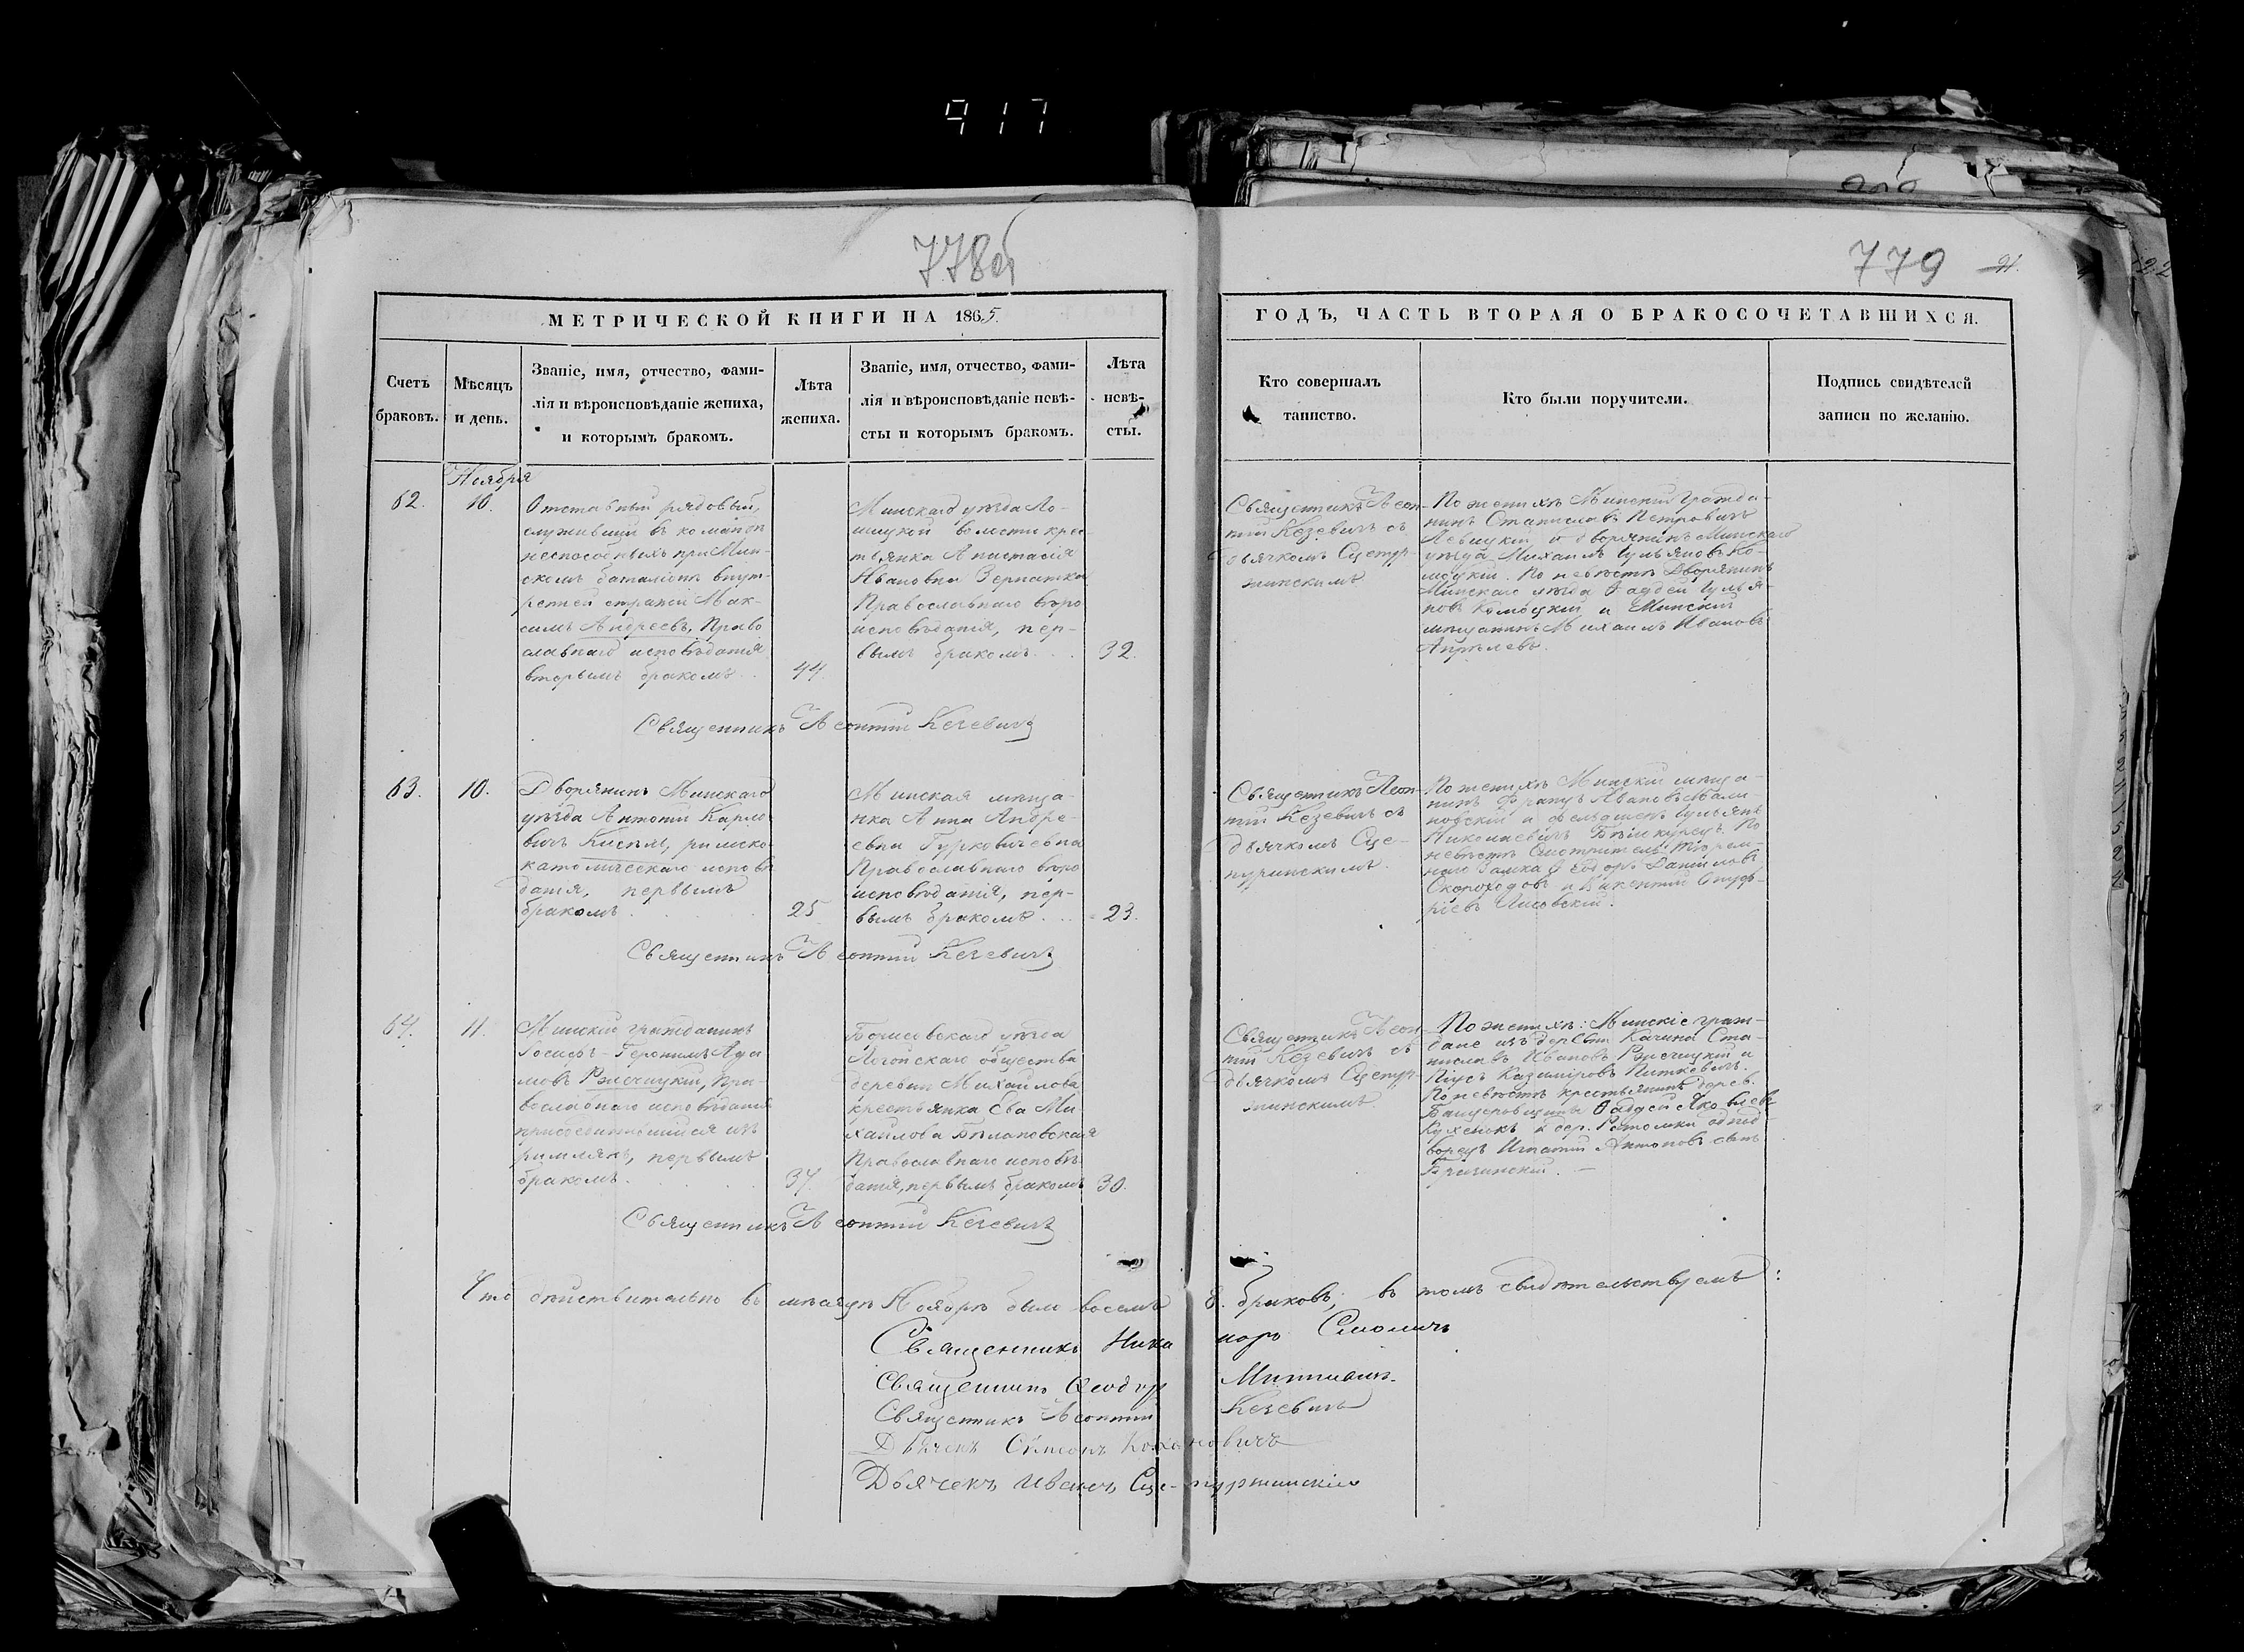 917
778об
779
91.
МЕТРИЧЕСКОЙ КНИГИ НА 1865.
ГОДЪ, ЧАСТЬ ВТОРАЯ О БРАКОСОЧЕТАВШИХСЯ.
Счетъ
браковъ.
Мѣсяцъ
и день.
Званіе, имя, отчество, фами-
лія и вѣроисповѣданіе жениха,
и которымъ бракомъ.
Лѣта
жениха.
Званіе, имя, отчество, фами-
лія и вѣроисповѣданіе невѣ-
сты и которымъ бракомъ.
Лѣта
невѣ-
сты.
Кто совершалъ
таинство.
Кто были поручители.
Подпись свидѣтелей
записи по желанію.
Ноября
62.
10.
Отставный рядовый,
служившій въ командѣ
неспособныхъ при Мин-
скомъ баталіонѣ внут-
ренней стражи Мак-
симъ Андреевъ, Право
славнаго исповѣданія
вторымъ бракомъ
44.
Минскаго уѣзда Ло-
шицкой волости крес-
тьянка Анастасія
Ивановна
Православнаго вѣро
исповѣданія, пер-
вымъ бракомъ
32.
Священникъ Леон-
тій Кезевичъ съ
дьячкомъ Сцепур-
жинскимъ
По женихѣ Минскій гражда-
нинъ Станиславъ Петровичъ
Левицкій и дворянинъ Минскаго
уѣзда Михаилъ Ульяновъ Ко-
моцкій. По невѣстѣ Дворянинъ
Минскаго уѣзда Ѳаддей Улья-
новъ Комоцкій и Минскій
мѣщанинъ Михаилъ Ивановъ
Апрѣлевъ.
Священникъ Леонтій Кезевичъ
63.
10.
Дворянинъ Минскаго
уѣзда Антоній Карло
вичъ Кисель, римско-
католическаго исповѣ
данія, первымъ
бракомъ
25
Минская мѣща-
нка Анна Андре-
евна Гурковичевна
Православнаго вѣро
исповѣданія, пер-
вымъ бракомъ
23.
Священникъ Леон-
тій Кезевичъ съ
дьячкомъ Сце-
пуринскимъ
По женихѣ Минскій мѣща-
нинъ Францъ Ивановъ Мали-
новскій и фельдшеръ Ульянъ
Николаевичъ Бѣлокурецъ. По
невѣстѣ Смотритель Тюрем-
наго Замка Ѳедоръ Даниловъ
Скороходовъ и Викентій Онуф-
ріевъ Лисовскій.
Священникъ Леонтій Кезевичъ
64.
11.
Минскій гражданинъ
Іосифъ-Геронимъ Ада
мовъ Ржечицкій, Пра-
вославнаго исповѣданія
присоединившійся изъ
римлянъ, первымъ
бракомъ
37.
Борисовскаго уѣзда
Логойскаго общества
деревни Михайлова
крестьянка Ева Ми-
хайлова Бѣлановская
Православнаго исповѣ
данія, первымъ бракомъ
30.
Священникъ Леон
тій Кезевичъ съ
дьячкомъ Сцепур-
жинскимъ
По женихѣ: Минскіе граж-
дане изъ деревни Качина Ста-
ниславъ Ивановъ Ржечицкій и
Піусъ Казиміровъ Питкевичъ.
По невѣстѣ крестьянинъ дерев.
Ѳаддей Яковлевъ
и дер. Ратомки однод-
ворецъ Игнатій Антоновъ сынъ
Священникъ Леонтій Кезевичъ
Что дѣйствительно въ мѣсяцѣ Ноябрѣ было восемь 8. браковъ, въ томъ свидѣтельствуемъ:
Священникъ Никаноръ Смоличъ
Священникъ Ѳеодоръ
Священникъ Леонтій Кезевичъ
Дьячекъ Симеонъ Кохановичъ
Дьячекъ Иванъ Сцепуржинскій